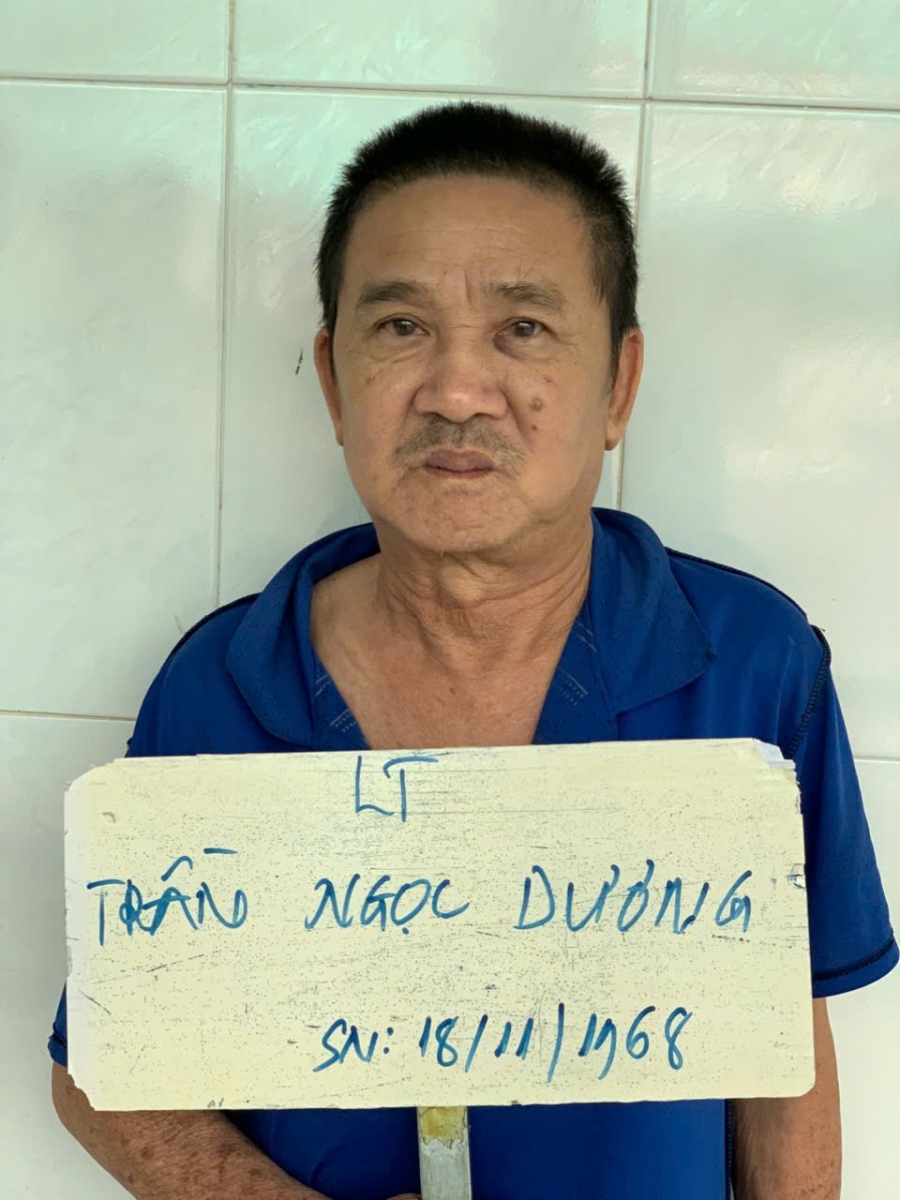 LT
TRẦN NGỌC DƯƠNG
SN: 18/11/1968